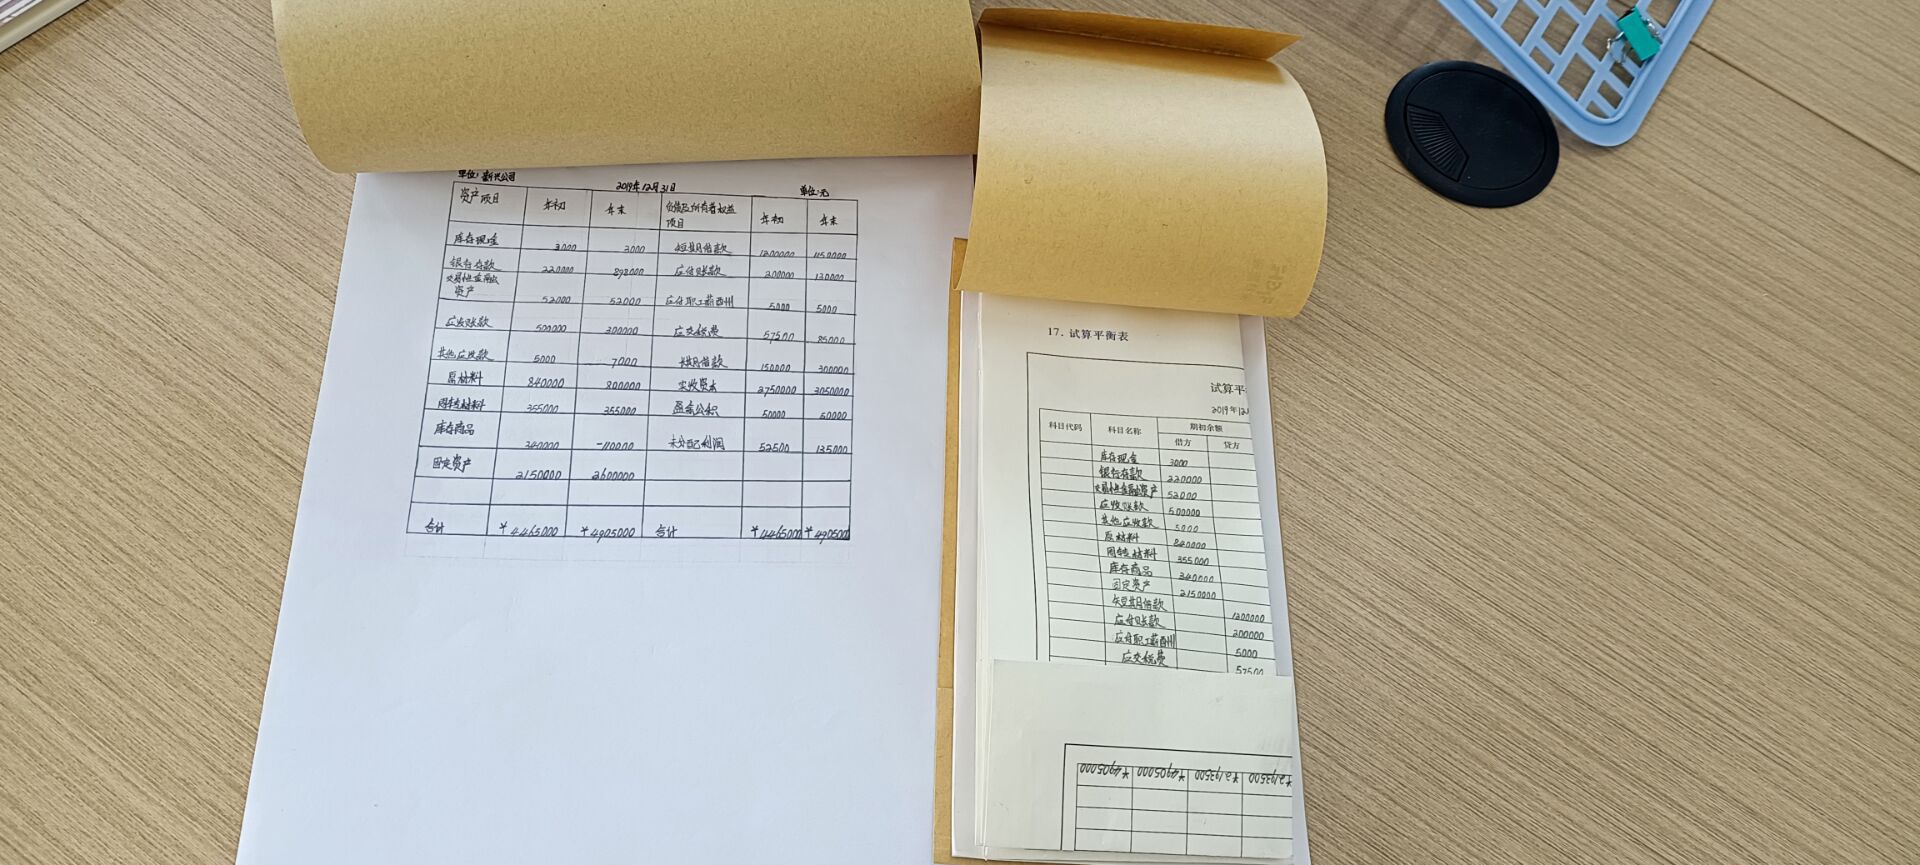 单位：新兴公司 2019年12月31日 单位：元
资产项目 年初 年末 负债及所有者权益项目 年初 年末
库存现金 3000 3000 短期借款 1200000 1150000
银行存款 220000 898000 应付账款 200000 120000
交易性金融资产 52000 52000 应付职工薪酬 5000 5000
应收账款 500000 300000 应交税费 57500 85000
其他应收款 5000 7000 长期借款 150000 300000
原材料 840000 800000 实收资本 2750000 3050000
周转材料 355000 355000 盈余公积 50000 60000
库存商品 340000 -110000 未分配利润 52500 135000
固定资产 2150000 2600000
合计 ¥4465000 ¥4905000 合计 ¥4465000 ¥4905000
17. 试算平衡表
试算平
2019年12
科目代码 科目名称 期初余额
借方 贷方
库存现金 3000
银行存款 220000
交易性金融资产 52000
应收账款 500000
其他应收款 5000
原材料 840000
周转材料 355000
库存商品 340000
固定资产 2150000
短期借款 1200000
应付账款 200000
应付职工薪酬 5000
应交税费 57500
¥4905000 ¥4905000 ¥2193500 ¥2193500